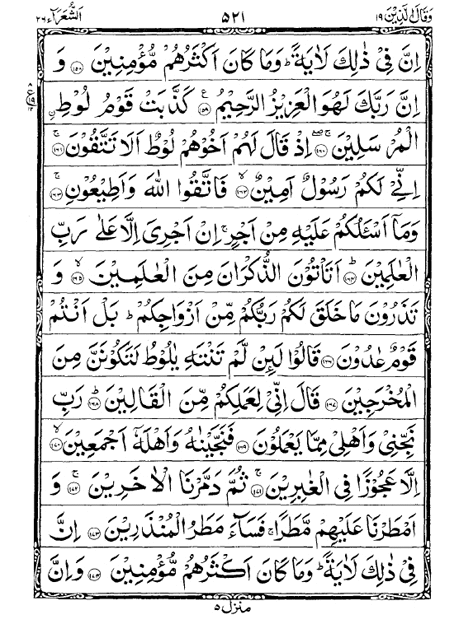 وَقَالَ الَّذِيْنَ ١٩ ٥٢١ الشُّعَرَآء ٢٦
اِنَّ فِيْ ذٰلِكَ لَاٰيَةً ؕ وَمَا كَانَ اَكْثَرُهُمْ مُّؤْمِنِيْنَ ﴿١٥٨﴾ وَ
اِنَّ رَبَّكَ لَهُوَ الْعَزِيْزُ الرَّحِيْمُ ﴿١٥٩﴾ كَذَّبَتْ قَوْمُ لُوْطِ ۨ
الْمُرْسَلِيْنَ ﴿١٦٠﴾ اِذْ قَالَ لَهُمْ اَخُوْهُمْ لُوْطٌ اَلَا تَتَّقُوْنَ ﴿١٦١﴾
اِنِّيْ لَكُمْ رَسُوْلٌ اَمِيْنٌ ﴿١٦٢﴾ فَاتَّقُوا اللّٰهَ وَاَطِيْعُوْنِ ﴿١٦٣﴾
وَمَآ اَسْـَٔلُكُمْ عَلَيْهِ مِنْ اَجْرٍ ۚ اِنْ اَجْرِيَ اِلَّا عَلٰى رَبِّ
الْعٰلَمِيْنَ ﴿١٦٤﴾ اَتَاْتُوْنَ الذُّكْرَانَ مِنَ الْعٰلَمِيْنَ ﴿١٦٥﴾ وَ
تَذَرُوْنَ مَا خَلَقَ لَكُمْ رَبُّكُمْ مِّنْ اَزْوَاجِكُمْ ؕ بَلْ اَنْتُمْ
قَوْمٌ عٰدُوْنَ ﴿١٦٦﴾ قَالُوْا لَئِنْ لَّمْ تَنْتَهِ يٰلُوْطُ لَتَكُوْنَنَّ مِنَ
الْمُخْرَجِيْنَ ﴿١٦٧﴾ قَالَ اِنِّيْ لِعَمَلِكُمْ مِّنَ الْقَالِيْنَ ؕ ﴿١٦٨﴾ رَبِّ
نَجِّنِيْ وَاَهْلِيْ مِمَّا يَعْمَلُوْنَ ﴿١٦٩﴾ فَنَجَّيْنٰهُ وَاَهْلَهٗٓ اَجْمَعِيْنَ ۙ ﴿١٧٠﴾
اِلَّا عَجُوْزًا فِي الْغٰبِرِيْنَ ۚ ﴿١٧١﴾ ثُمَّ دَمَّرْنَا الْاٰخَرِيْنَ ۚ ﴿١٧٢﴾ وَ
اَمْطَرْنَا عَلَيْهِمْ مَّطَرًا ۚ فَسَآءَ مَطَرُ الْمُنْذَرِيْنَ ﴿١٧٣﴾ اِنَّ
فِيْ ذٰلِكَ لَاٰيَةً ؕ وَمَا كَانَ اَكْثَرُهُمْ مُّؤْمِنِيْنَ ﴿١٧٤﴾ وَاِنَّ
منزل ٥